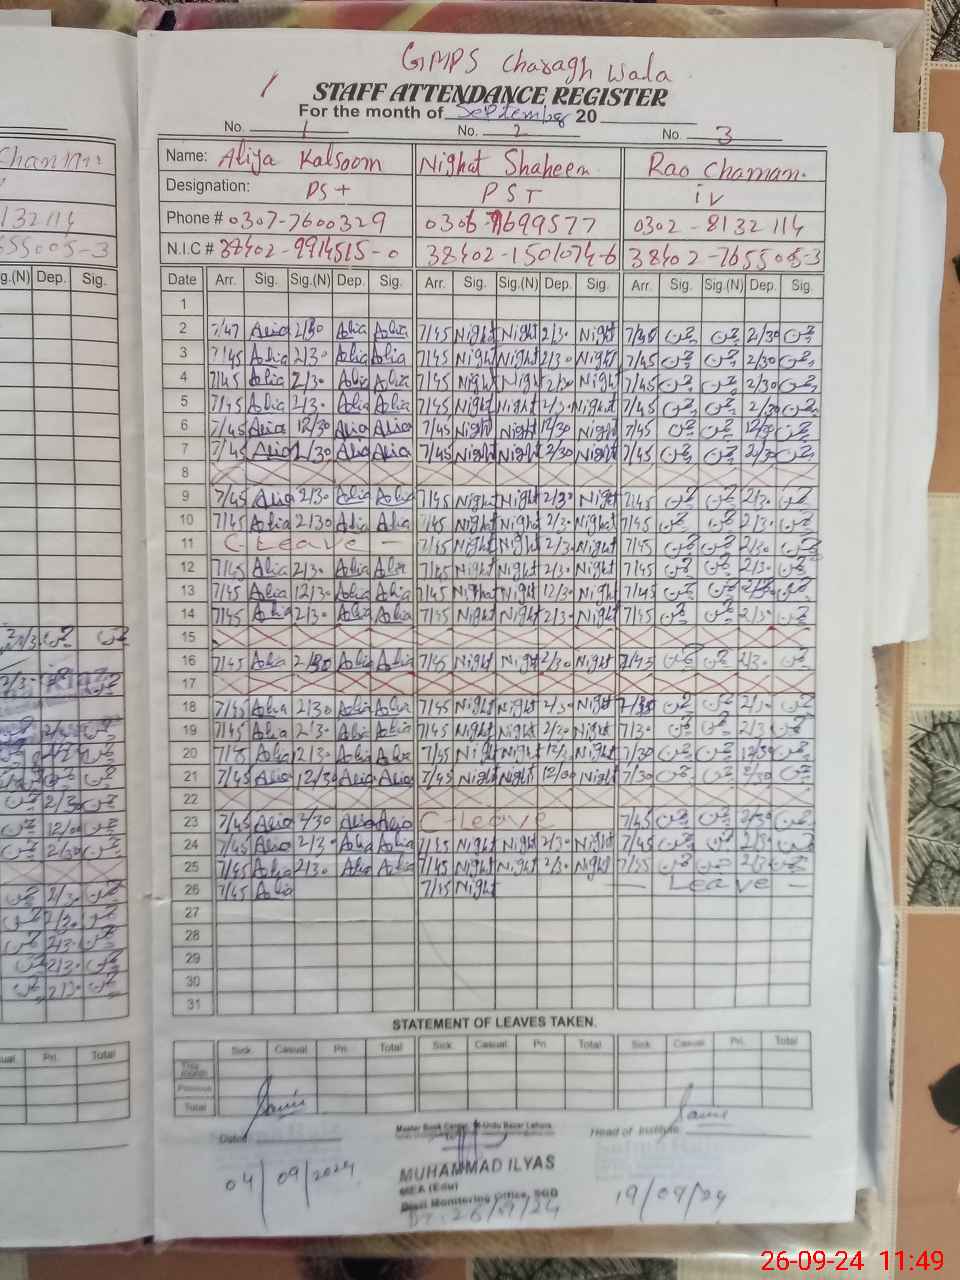 GMPS Charagh Wala
STAFF ATTENDANCE REGISTER
For the month of September 20
No. 1 No. 2 No. 3
Name: Aliya Kalsoom Nighat Shaheen Rao Chaman.
Designation: PST PST iv
Phone # 0307-7600329 0306-7699577 0302-8132114
N.I.C # 38402-9914515-0 38402-1501074-6 38402-7655005-3
Date Arr. Sig. Sig.(N) Dep. Sig. Arr. Sig. Sig.(N) Dep. Sig. Arr. Sig. Sig.(N) Dep. Sig.
1
2 7/47 Alia 2/30 Alia Alia 7/45 Night Night 2/30 Night چمن چمن 2/30 چمن
3 7/45 Alia 2/30 Alia Alia 7/45 Night Night 2/30 Night 7/45 چمن چمن 2/30 چمن
4 7/45 Alia 2/30 Alia Alia 7/45 Night Night 2/30 Night 7/45 چمن چمن 2/30 چمن
5 7/45 Alia 2/30 Alia Alia 7/45 Night Night 2/30 Night 7/45 چمن چمن 2/30 چمن
6 7/45 Alia 12/30 Alia Alia 7/45 Night Night 12/30 Night 7/45 چمن چمن 12/30 چمن
7 7/45 Alia 2/30 Alia Alia 7/45 Night Night 2/30 Night 7/45 چمن چمن 2/30 چمن
8
9 7/45 Alia 2/30 Alia Alia 7/45 Night Night 2/30 Night 7/45 چمن چمن 2/30 چمن
10 7/45 Alia 2/30 Alia Alia 7/45 Night Night 2/30 Night 7/45 چمن چمن 2/30 چمن
11 C-Leave — 7/45 Night Night 2/30 Night 7/45 چمن چمن 2/30 چمن
12 7/45 Alia 2/30 Alia Alia 7/45 Night Night 2/30 Night 7/45 چمن چمن 2/30 چمن
13 7/45 Alia 12/30 Alia Alia 7/45 Night Night 12/30 Night 7/45 چمن چمن چمن
14 7/45 Alia 2/30 Alia Alia 7/45 Night Night 2/30 Night 7/45 چمن چمن 2/30 چمن
15
16 7/45 Alia 2/30 Alia Alia 7/45 Night Night 2/30 Night 7/45 چمن چمن 2/30 چمن
17
18 7/45 Alia 2/30 Alia Alia 7/45 Night Night 2/30 Night چمن چمن 2/30 چمن
19 7/45 Alia 2/30 Alia Alia 7/45 Night Night 2/30 Night 7/30 چمن چمن 2/30 چمن
20 7/45 Alia 2/30 Alia Alia 7/45 Night Night Night 7/30 چمن چمن 12/30 چمن
21 7/45 Alia 12/30 Alia Alia 7/45 Night Night 12/00 Night 7/30 چمن چمن چمن
22
23 7/45 Alia 2/30 Alia Alia C-Leave 7/45 چمن چمن 2/30 چمن
24 7/45 Alia 2/30 Alia Alia 7/45 Night Night 2/30 Night 7/45 چمن چمن 2/30 چمن
25 7/45 Alia 2/30 Alia Alia 7/45 Night Night 2/30 Night 7/45 چمن چمن 2/30 چمن
26 7/45 Alia 7/45 Night — Leave —
27
28
29
30
31
STATEMENT OF LEAVES TAKEN.
Sick Casual Pri. Total Sick Casual Pri. Total Sick Casual Pri. Total
This Month
Previous
Total
Master Book Center, Urdu Bazar Lahore.
Dated Head of Institute:
04/09/2024
MUHAMMAD ILYAS
MEA (Edu)
Distt Monitoring Office, SGD
Dt: 26/9/24
19/09/24
26-09-24 11:49